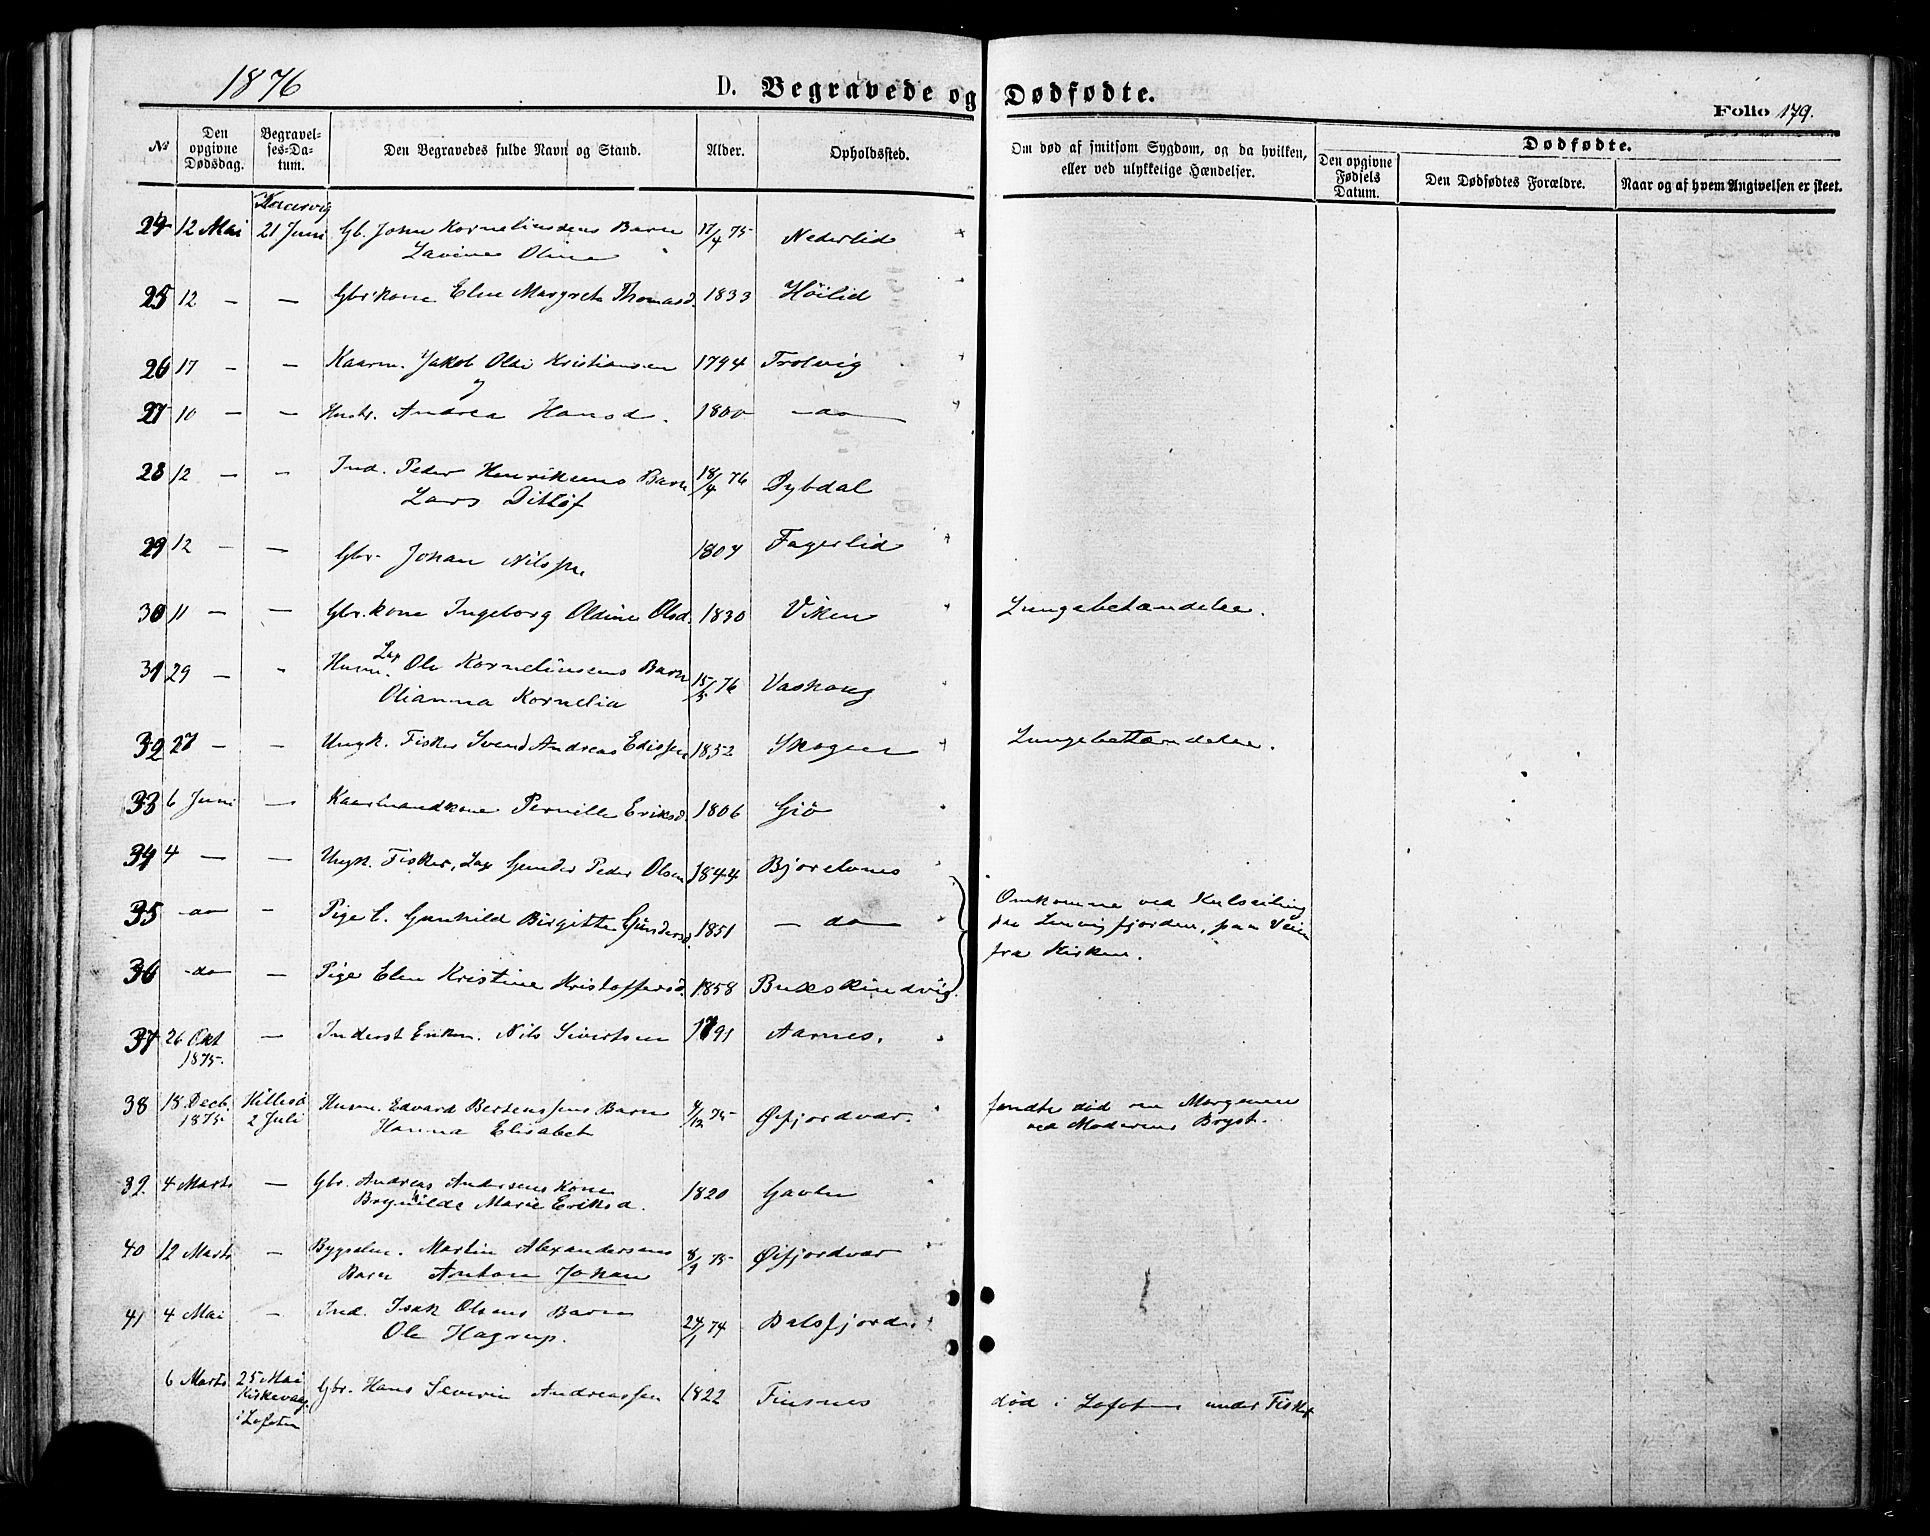 1876
D. Begravede og Dødfødte.
Folio 179.
№
Den opgivne Dødsdag.
Begravelses-Datum.
Den Begravedes fulde Navn og Stand.
Alder.
Opholdssted.
Om død af smitsom Sygdom, og da hvilken,
eller ved ulykkelige Hændelser.
Dødfødte.
Den opgivne Fødsels Datum.
Den Dødfødtes Forældre.
Naar og af hvem Angivelsen er skeet.
24 12 Mai 21 Juni Gb. John Korneliussens Barn 17/4 75 Nederlid
Lavine Oline
25 12 — — Gbr.kone Elen Margrete Thomasd. 1833 Høilid
26 17 — — Kaarm. Jakob Olai Kristiansen 1794 Trolvig
27 10 — — Hustr. Andrea Hansd. 1800 — do —
28 12 — — Ind. Peder Henriksens Barn 18/4 76 Dybdal
Lars Ditløf
29 12 — — Gbr. Johan Nilssen 1804 Fagerlid
30 11 — — Gbr.kone Ingeborg Oldine Olsd. 1830 Viken Lungebetændelse.
31 29 — — Husm. Lap Ole Korneliusens Barn 15/5 76 Vashaug
Olianna Kornelia
32 27 — — Ungk. Fisker Svend Andreas Edissen 1852 Skogen Lungebetændelse.
33 6 Juni — Kaarmandkone Pernille Eriksd. 1806 Giø
34 4 — — Ungk. Fisker, Lap Gunder Peder Olsen 1844 Bjorelvnes
35 — do — Pige L. Gunhild Birgitte Gundersd. 1851 — do — Omkomne ved Kulseiling
paa Veien
fra Kirken.
36 — do — Pige Elen Kristine Kristoffersd. 1858 Bukskindvig.
37 26 Okt 1875. — Inderst Enkem. Nils Sivertsen 1791 Aarnes.
38 18 Decb. 1875 Hillesø 2 Juli Husm. Edvard Bertenssens Barn 4/12 75 Øifjordvær. fandtes død om Morgenen
Hanna Elisabet ved Moderens Bryst.
39. 4 Marts — Gbr. Andreas Andersens Kone 1820 Gavlen
Brynhilde Marie Eriksd.
40 12 Marts — Bygselm. Martin Alexandersens 8/9 75 Øifjordvær
Barn Anton Johan
41 4 Mai — Ind. Isak Olsens Barn 24/1 74 Balsfjorden
Ole Hagrup.
6 Marts 25 Mai Kirkevaag i Lofoten Gbr. Hans Severin Andreassen 1822 Finsnes død i Lofoten under Fiske